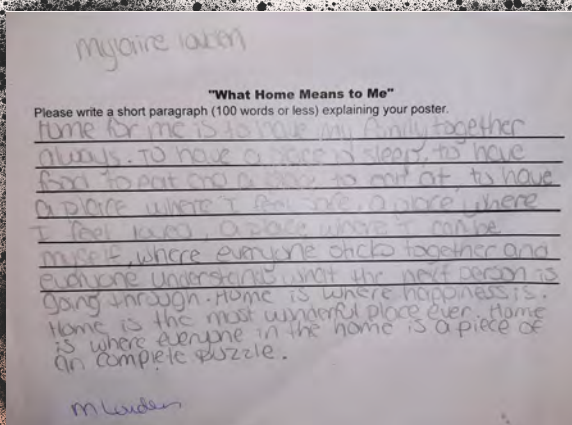 "What Home Means to Me"
Please write a short paragraph (100 words or less) explaining your poster.
Home for me is to have my family together
always. To have a place to sleep, to have
food to eat and a table to eat at, to have
a place where I feel safe, a place where
I feel loved, a place where I can be
myself, where everyone sticks together and
everyone understands what the next person is
going through. Home is where happiness is.
Home is the most wonderful place ever. Home
is where everyone in the home is a piece of
an complete puzzle.